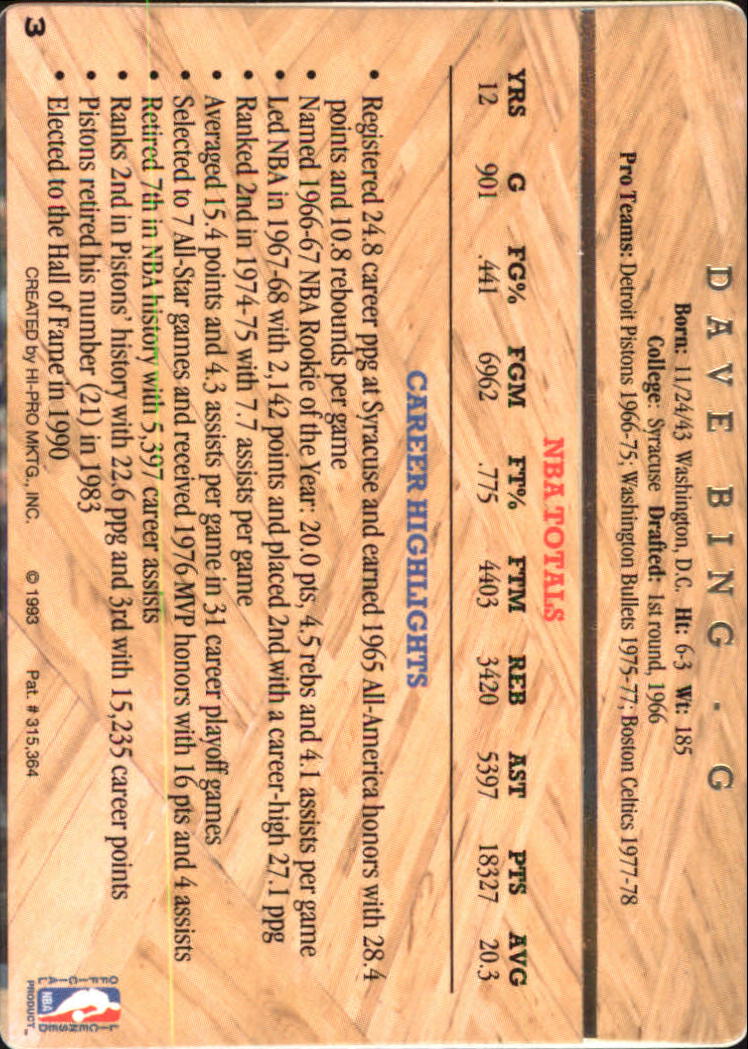 DAVE BING · G
Born: 11/24/43 Washington, D.C. Ht: 6-3 Wt: 185
College: Syracuse Drafted: 1st round, 1966
Pro Teams: Detroit Pistons 1966-75; Washington Bullets 1975-77; Boston Celtics 1977-78
NBA TOTALS
YRS G FG% FGM FT% FTM REB AST PTS AVG
12 901 .441 6962 .775 4403 3420 5397 18327 20.3
CAREER HIGHLIGHTS
• Registered 24.8 career ppg at Syracuse and earned 1965 All-America honors with 28.4
points and 10.8 rebounds per game
• Named 1966-67 NBA Rookie of the Year: 20.0 pts, 4.5 rebs and 4.1 assists per game
• Led NBA in 1967-68 with 2,142 points and placed 2nd with a career-high 27.1 ppg
• Ranked 2nd in 1974-75 with 7.7 assists per game
• Averaged 15.4 points and 4.3 assists per game in 31 career playoff games
• Selected to 7 All-Star games and received 1976 MVP honors with 16 pts and 4 assists
• Retired 7th in NBA history with 5,397 career assists
• Ranks 2nd in Pistons' history with 22.6 ppg and 3rd with 15,235 career points
• Pistons retired his number (21) in 1983
• Elected to the Hall of Fame in 1990
3
CREATED by HI-PRO MKTG., INC. © 1993 Pat. # 315,364
OFFICIAL LICENSED
NBA
PRODUCT™